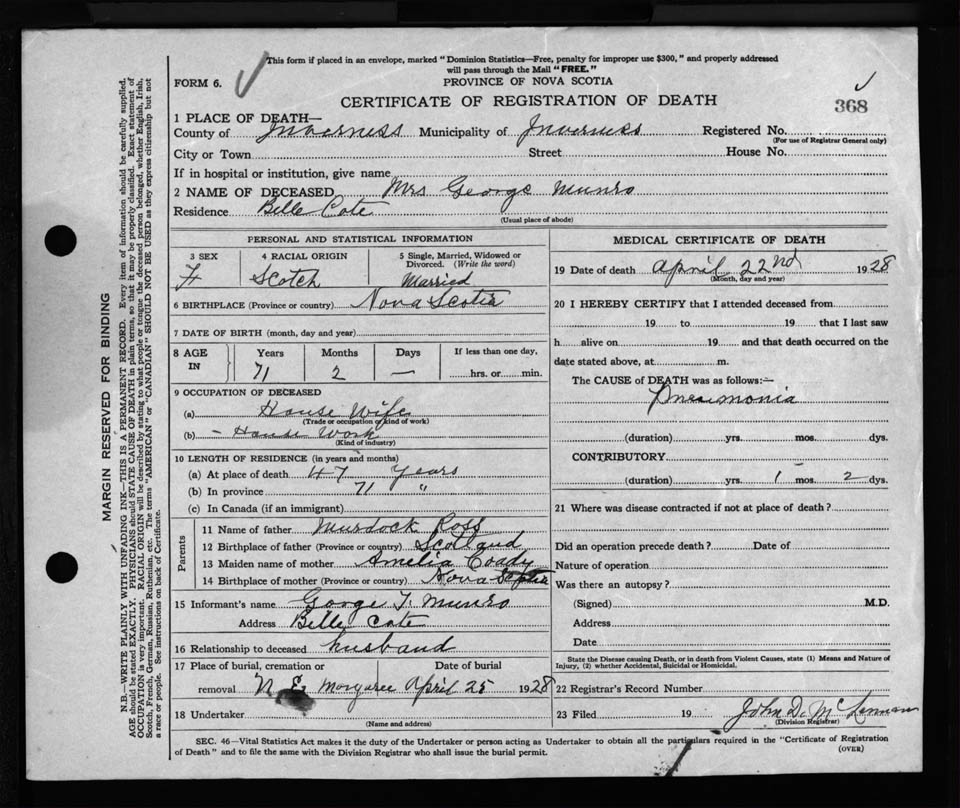 This form if placed in an envelope, marked "Dominion Statistics—Free, penalty for improper use $300," and properly addressed
will pass through the Mail "FREE."
FORM 6.
PROVINCE OF NOVA SCOTIA
CERTIFICATE OF REGISTRATION OF DEATH
368
1 PLACE OF DEATH—
County of Inverness Municipality of Inverness Registered No.
(For use of Registrar General only)
City or Town Street House No.
If in hospital or institution, give name
2 NAME OF DECEASED Mrs George Munro
Residence Belle Cote
(Usual place of abode)
PERSONAL AND STATISTICAL INFORMATION
3 SEX 4 RACIAL ORIGIN 5 Single, Married, Widowed or
Divorced. (Write the word)
F Scotch Married
6 BIRTHPLACE (Province or country) Nova Scotia
7 DATE OF BIRTH (month, day and year)
8 AGE IN Years Months Days If less than one day,
71 2 — hrs. or min.
9 OCCUPATION OF DECEASED
(a) House Wife
(Trade or occupation or kind of work)
(b) - House Work
(Kind of industry)
10 LENGTH OF RESIDENCE (in years and months)
(a) At place of death 47 years
(b) In province 71 "
(c) In Canada (if an immigrant)
Parents
11 Name of father Murdock Ross
12 Birthplace of father (Province or country) Scotland
13 Maiden name of mother Amelia Coady
14 Birthplace of mother (Province or country) Nova Scotia
15 Informant's name Goorge T. Munro
Address Belle Cote
16 Relationship to deceased husband
17 Place of burial, cremation or Date of burial
removal N E Margaree April 25 1928
18 Undertaker
(Name and address)
MEDICAL CERTIFICATE OF DEATH
19 Date of death April 22nd 1928
(Month, day and year)
20 I HEREBY CERTIFY that I attended deceased from
19 to 19 that I last saw
h alive on 19 and that death occurred on the
date stated above, at m.
The CAUSE of DEATH was as follows:—
Pneumonia
(duration) yrs. mos. dys.
CONTRIBUTORY
(duration) yrs. 1 mos. 2 dys.
21 Where was disease contracted if not at place of death?
Did an operation precede death? Date of
Nature of operation
Was there an autopsy?
(Signed) M.D.
Address
Date
State the Disease causing Death, or in death from Violent Causes, state (1) Means and Nature of
Injury, (2) whether Accidental, Suicidal or Homicidal.
22 Registrar's Record Number
23 Filed 19 John D. McLennan
(Division Registrar)
SEC. 46—Vital Statistics Act makes it the duty of the Undertaker or person acting as Undertaker to obtain all the particulars required in the "Certificate of Registration
of Death" and to file the same with the Division Registrar who shall issue the burial permit. (OVER)
MARGIN RESERVED FOR BINDING
N.B.—WRITE PLAINLY WITH UNFADING INK—THIS IS A PERMANENT RECORD. Every item of information should be carefully supplied.
AGE should be stated EXACTLY. PHYSICIANS should STATE CAUSE OF DEATH in plain terms, so that it may be properly classified. Exact statement of
OCCUPATION is very important. RACIAL ORIGIN will be described by stating to what people or tongue the deceased person belonged, whether English, Irish,
Scotch, French, German, Russian, Ruthenian, etc. The terms "AMERICAN" or "CANADIAN" SHOULD NOT BE USED as they express citizenship but not
a race or people. See instructions on back of Certificate.